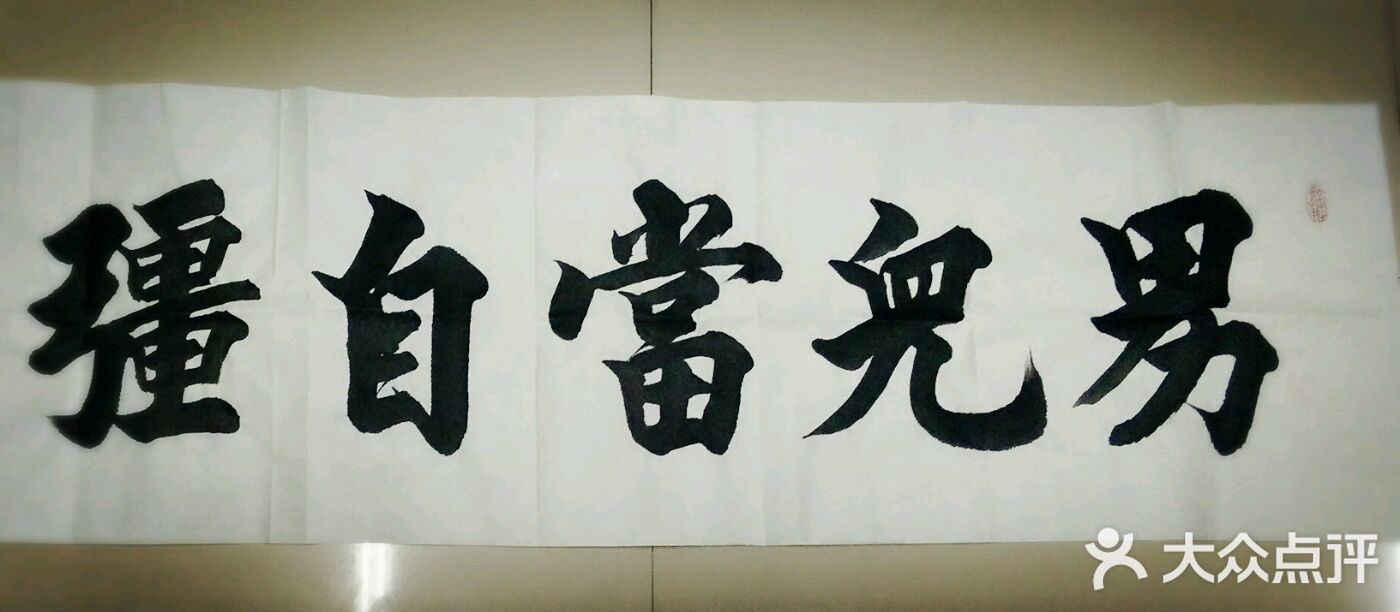 男兒當自彊
大众点评